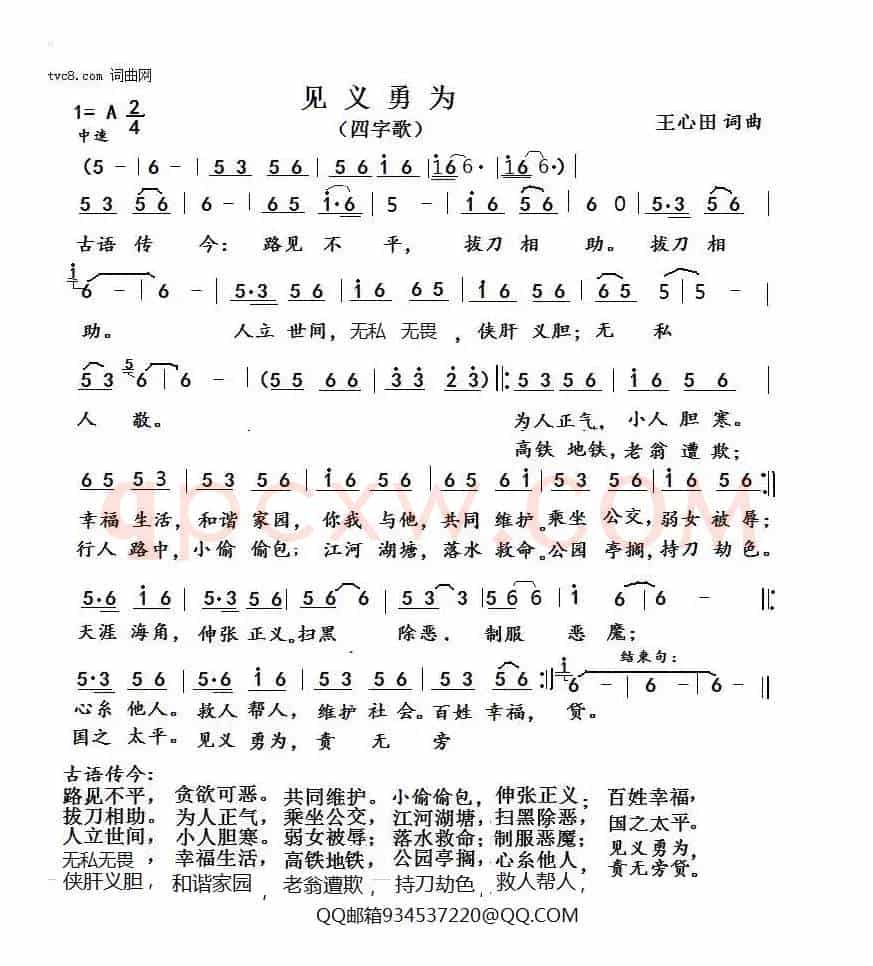 tvc8.com 词曲网
见义勇为
1= A 2/4
(四字歌)
王心田 词曲
中速
(5 - | 6 - | 5 3 5 6 | 5 6 i 6 | i6 6· | i6 6·) |
5 3 5 6 | 6 - | 6 5 i·6 | 5 - | i 6 5 6 | 6 0 | 5·3 5 6 |
古语 传 今: 路见 不 平, 拔刀 相 助。 拔刀 相
i 6 - | 6 - | 5·3 5 6 | i 6 6 5 | i 6 5 6 | 6 5 5 | 5 - |
助。 人立 世间, 无私 无畏, 侠肝 义胆; 无 私
5 3 5 6 | 6 - | (5 5 6 6 | 3 3 2 3) |: 5 3 5 6 | i 6 5 6 |
人 敬。 为人正气, 小人 胆 寒。
高铁 地铁, 老翁 遭 欺;
6 5 5 3 | 5 3 5 6 | i 6 5 6 | 6 5 6 i | 5 3 5 6 | i 6 5 6 :|
幸福 生活, 和谐 家园, 你我 与他, 共同 维护。乘坐 公交, 弱女 被 辱;
行人 路中, 小偷 偷包; 江河 湖塘, 落水 救命。公园 亭搁, 持刀 劫色。
5·6 i 6 | 5·3 5 6 | 5 6 6 | 5 3 3 | 5 6 6 | i 6 | 6 - |:
天涯 海角, 伸张 正义。扫黑 除恶, 制服 恶 魔;
结束句:
5·3 5 6 | 5·6 i 6 | 5 3 5 6 | 5 3 5 6 :| i 6 - | 6 - | 6 - |
心系 他人。 救人 帮人, 维护 社会。百姓 幸福, 贷。
国之 太平。 见义 勇为, 责 无 旁
古语传今:
路见不平, 贪欲可恶。 共同维护。 小偷偷包, 伸张正义; 百姓幸福,
拔刀相助。 为人正气, 乘坐公交, 江河湖塘, 扫黑除恶, 国之太平。
人立世间, 小人胆寒。 弱女被辱; 落水救命; 制服恶魔; 见义勇为,
无私无畏, 幸福生活, 高铁地铁, 公园亭搁, 心系他人, 责无旁贷。
侠肝义胆, 和谐家园, 老翁遭欺, 持刀劫色, 救人帮人,
QQ邮箱934537220@QQ.COM
qpcxw.COM